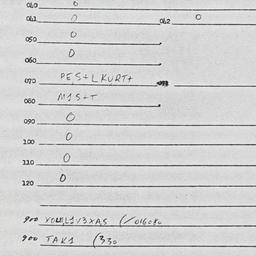 040 0
041 0 042 0
050 0
060 0
070 PES+LKURT+
080 M1S+T
090 0
100 0
110 0
120 0
900
900 TAK1 (330